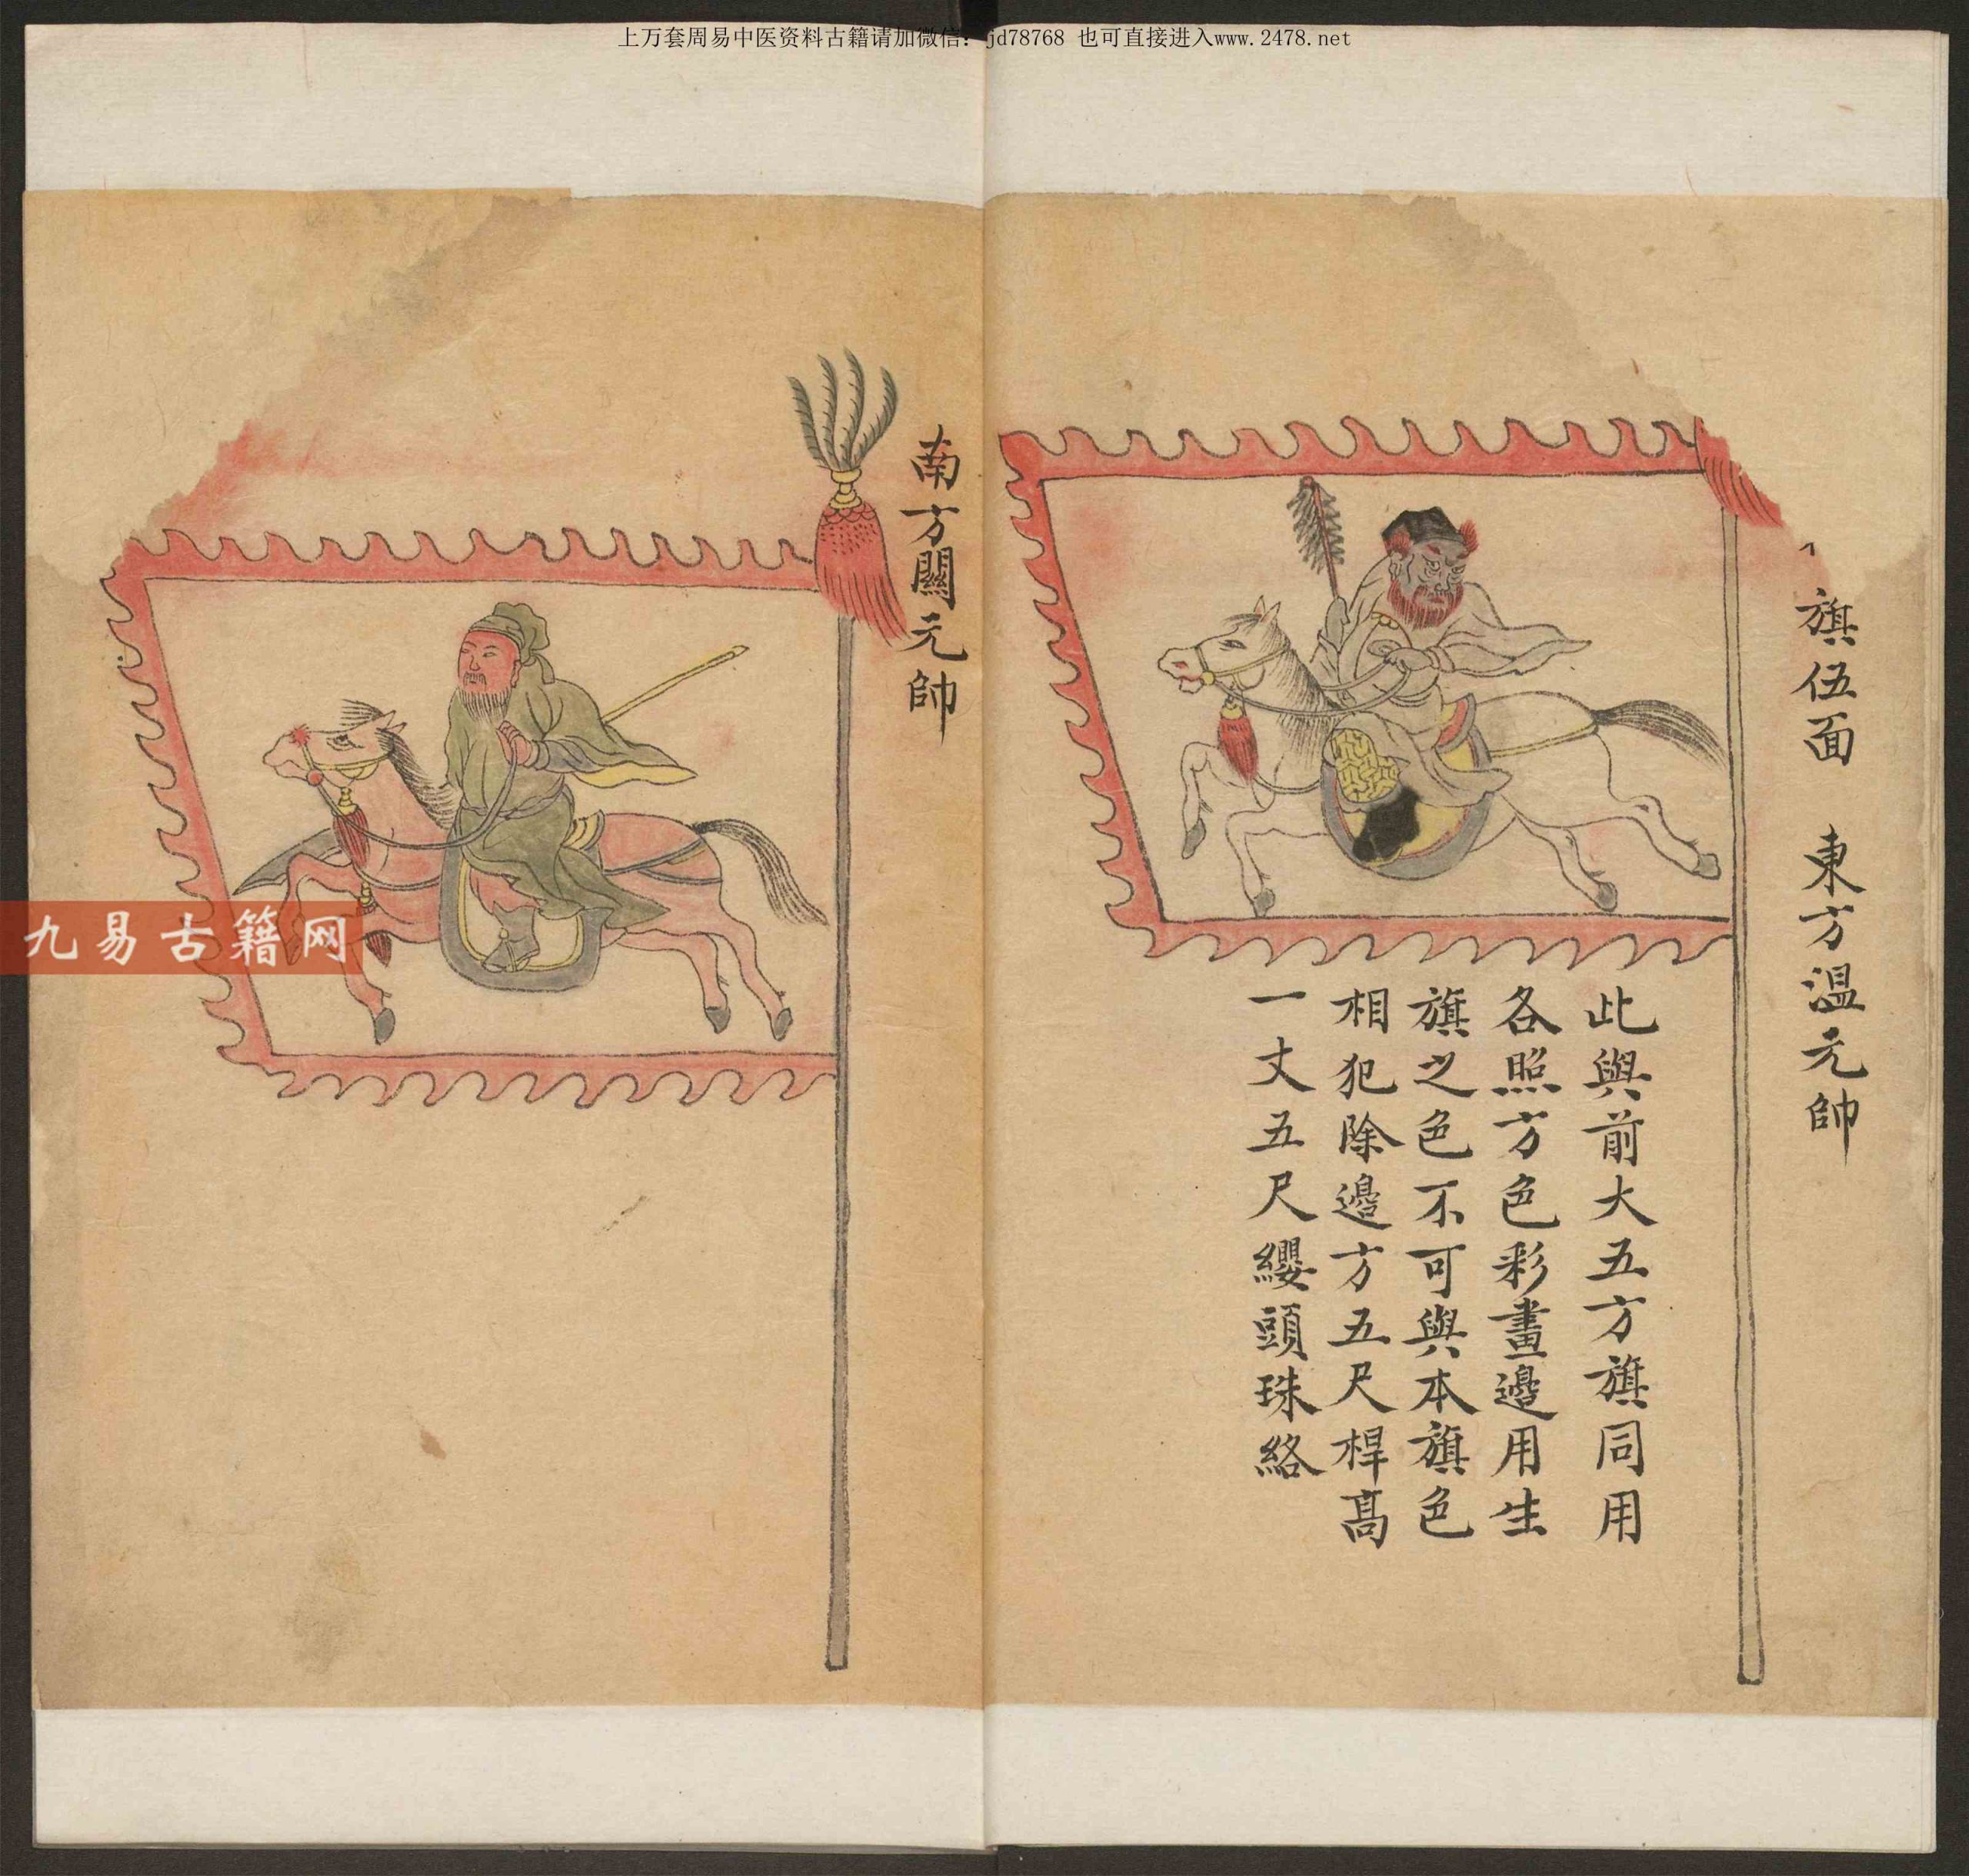 上万套周易中医资料古籍请加微信：jd78768 也可直接进入www.2478.net
旗伍面 東方温元帥
此與前大五方旗同用
各照方色彩畫邊用生
旗之色不可與本旗色
相犯除邊方五尺桿高
一丈五尺纓頭珠絡
南方關元帥
九易古籍网